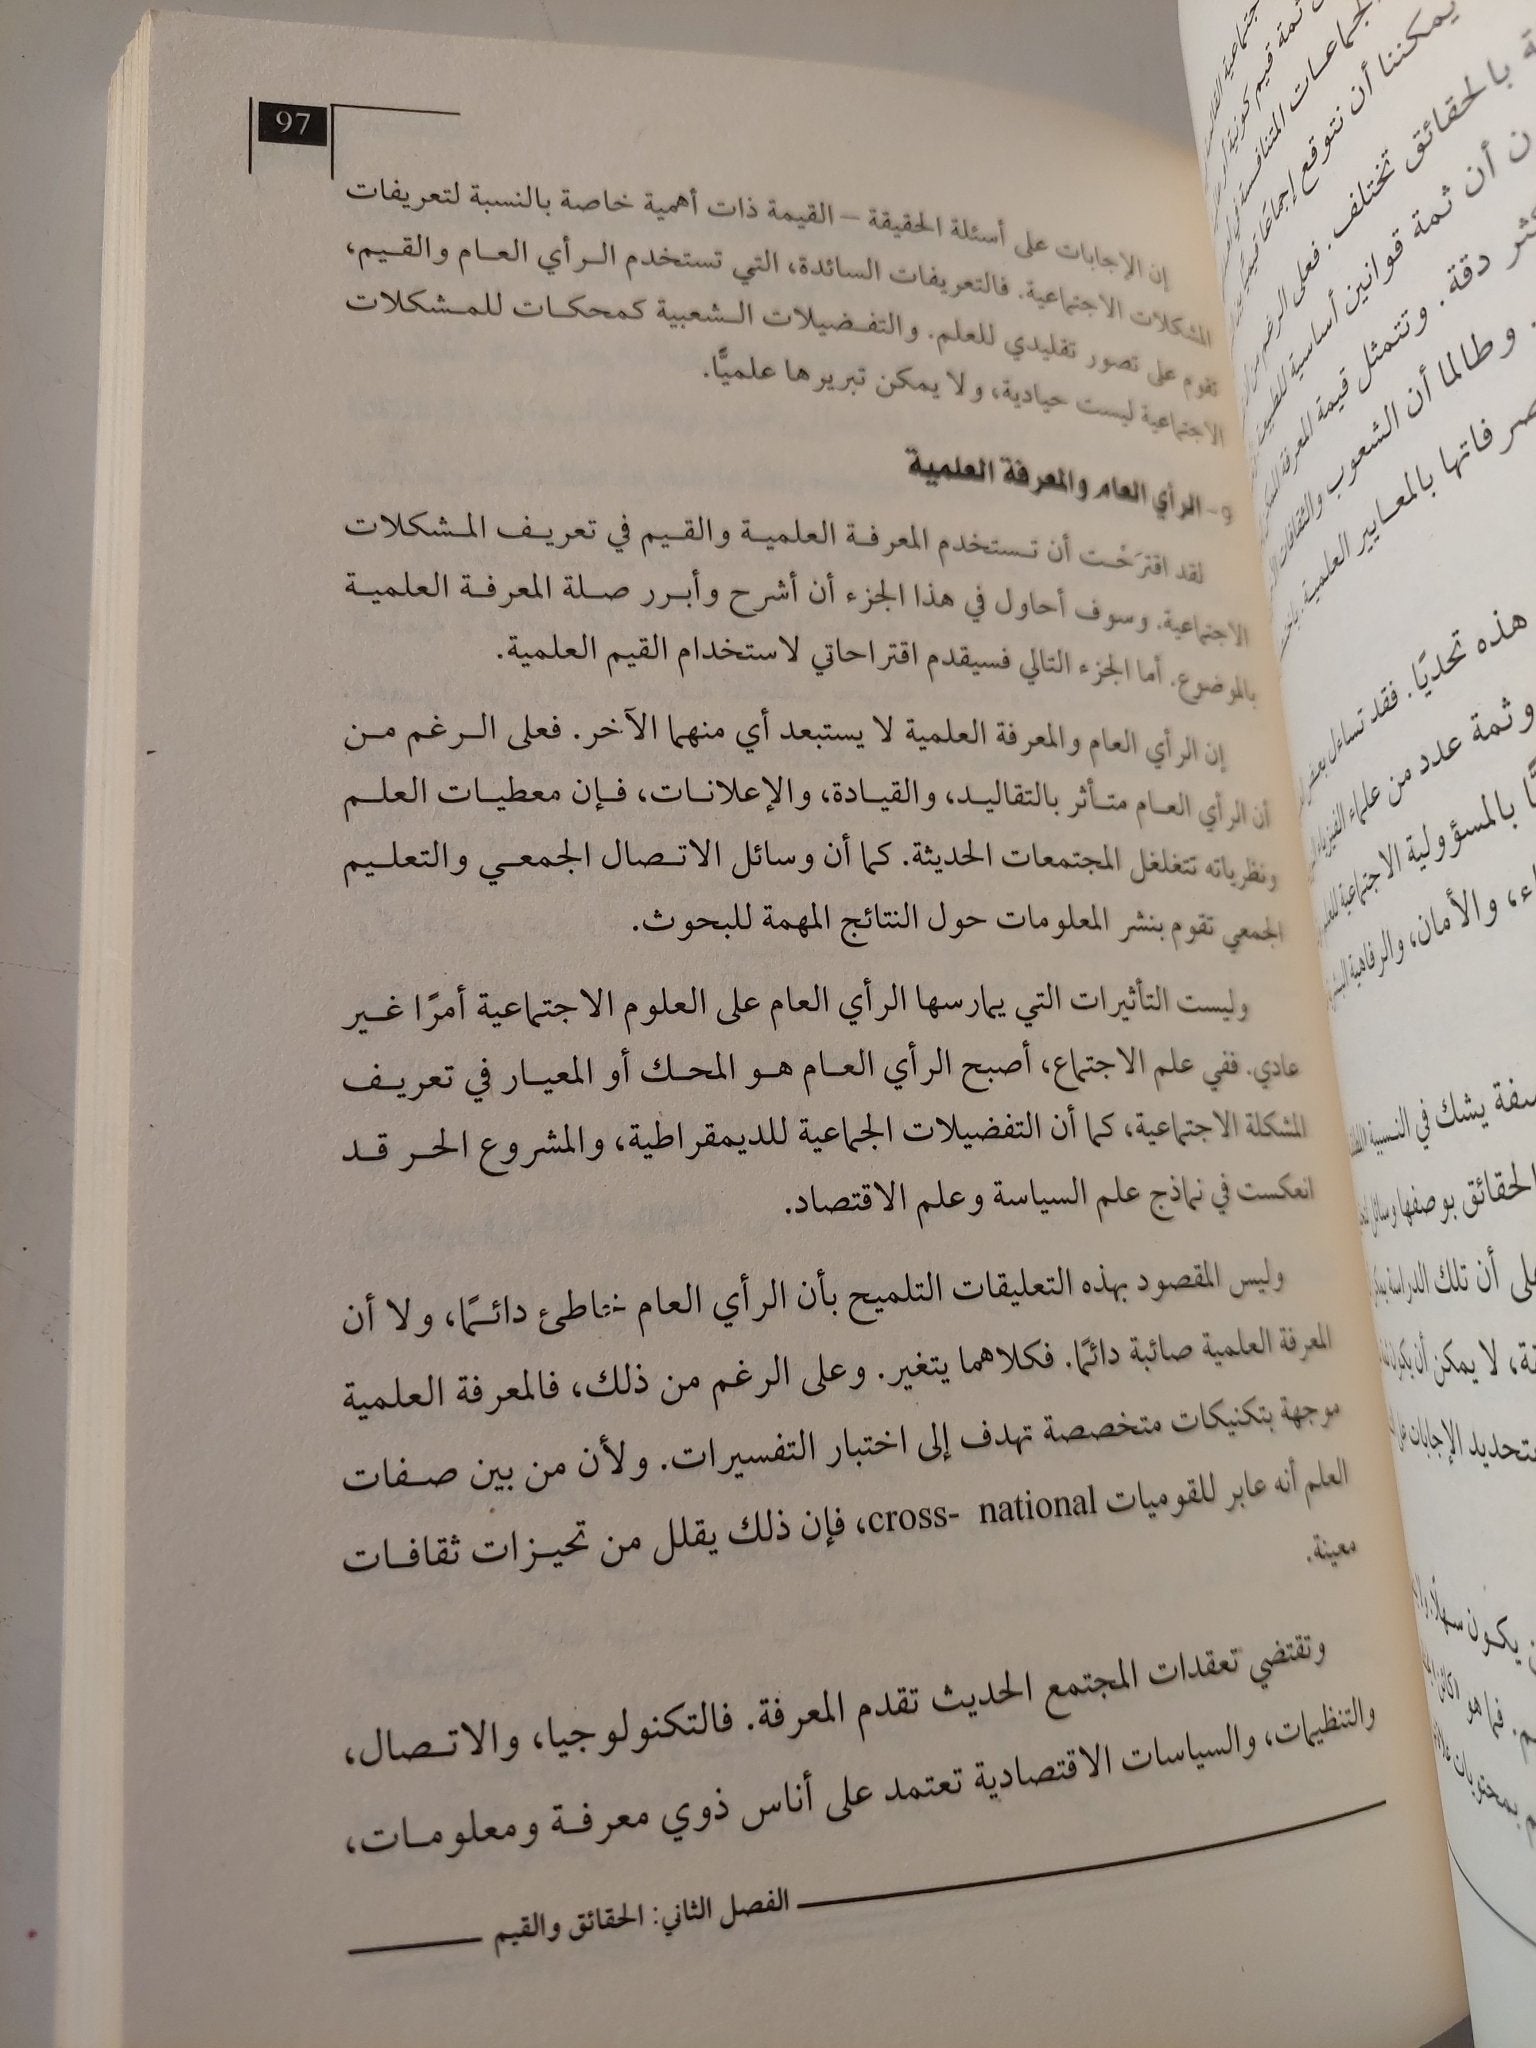 97
إن الإجابات على أسئلة الحقيقة – القيمة ذات أهمية خاصة بالنسبة لتعريفات
المشكلات الاجتماعية. فالتعريفات السائدة، التي تستخدم الرأي العام والقيم،
تقوم على تصور تقليدي للعلم. والتفضيلات الشعبية كمحكات للمشكلات
الاجتماعية ليست حيادية، ولا يمكن تبريرها علميًّا.
9- الرأي العام والمعرفة العلمية
لقد اقترَحْت أن تستخدم المعرفة العلمية والقيم في تعريف المشكلات
الاجتماعية. وسوف أحاول في هذا الجزء أن أشرح وأبرر صلة المعرفة العلمية
بالموضوع. أما الجزء التالي فسيقدم اقتراحاتي لاستخدام القيم العلمية.
إن الرأي العام والمعرفة العلمية لا يستبعد أي منهما الآخر. فعلى الرغم من
أن الرأي العام متأثر بالتقاليد، والقيادة، والإعلانات، فإن معطيات العلم
ونظرياته تتغلغل المجتمعات الحديثة. كما أن وسائل الاتصال الجمعي والتعليم
الجمعي تقوم بنشر المعلومات حول النتائج المهمة للبحوث.
وليست التأثيرات التي يمارسها الرأي العام على العلوم الاجتماعية أمرًا غير
عادي. ففي علم الاجتماع، أصبح الرأي العام هو المحك أو المعيار في تعريف
المشكلة الاجتماعية، كما أن التفضيلات الجماعية للديمقراطية، والمشروع الحر قد
انعكست في نماذج علم السياسة وعلم الاقتصاد.
وليس المقصود بهذه التعليقات التلميح بأن الرأي العام خاطئ دائمًا، ولا أن
المعرفة العلمية صائبة دائمًا. فكلاهما يتغير. وعلى الرغم من ذلك، فالمعرفة العلمية
موجهة بتكنيكات متخصصة تهدف إلى اختبار التفسيرات. ولأن من بين صفات
العلم أنه عابر للقوميات cross- national، فإن ذلك يقلل من تحيزات ثقافات
معينة.
وتقتضي تعقدات المجتمع الحديث تقدم المعرفة. فالتكنولوجيا، والاتصال،
والتنظيمات، والسياسات الاقتصادية تعتمد على أناس ذوي معرفة ومعلومات،
الفصل الثاني: الحقائق والقيم
يمكننا أن نتوقع إجماعًا
بالحقائق تختلف. فعلى الرغم من
أن ثمة قوانين أساسية
دقة. وتتمثل قيمة المعرفة
وطالما أن الشعوب والثقافات
بالمعايير العلمية.
هذه تحديًا. فقد تساءل بعض
وثمة عدد من علماء الفيزياء
بالمسؤولية الاجتماعية
والأمان، والرفاهية
يشك في النسبية
الحقائق بوصفها وسائل
أن تلك الدراسة
لا يمكن أن يكون
الإجابات
يكون
فما هو